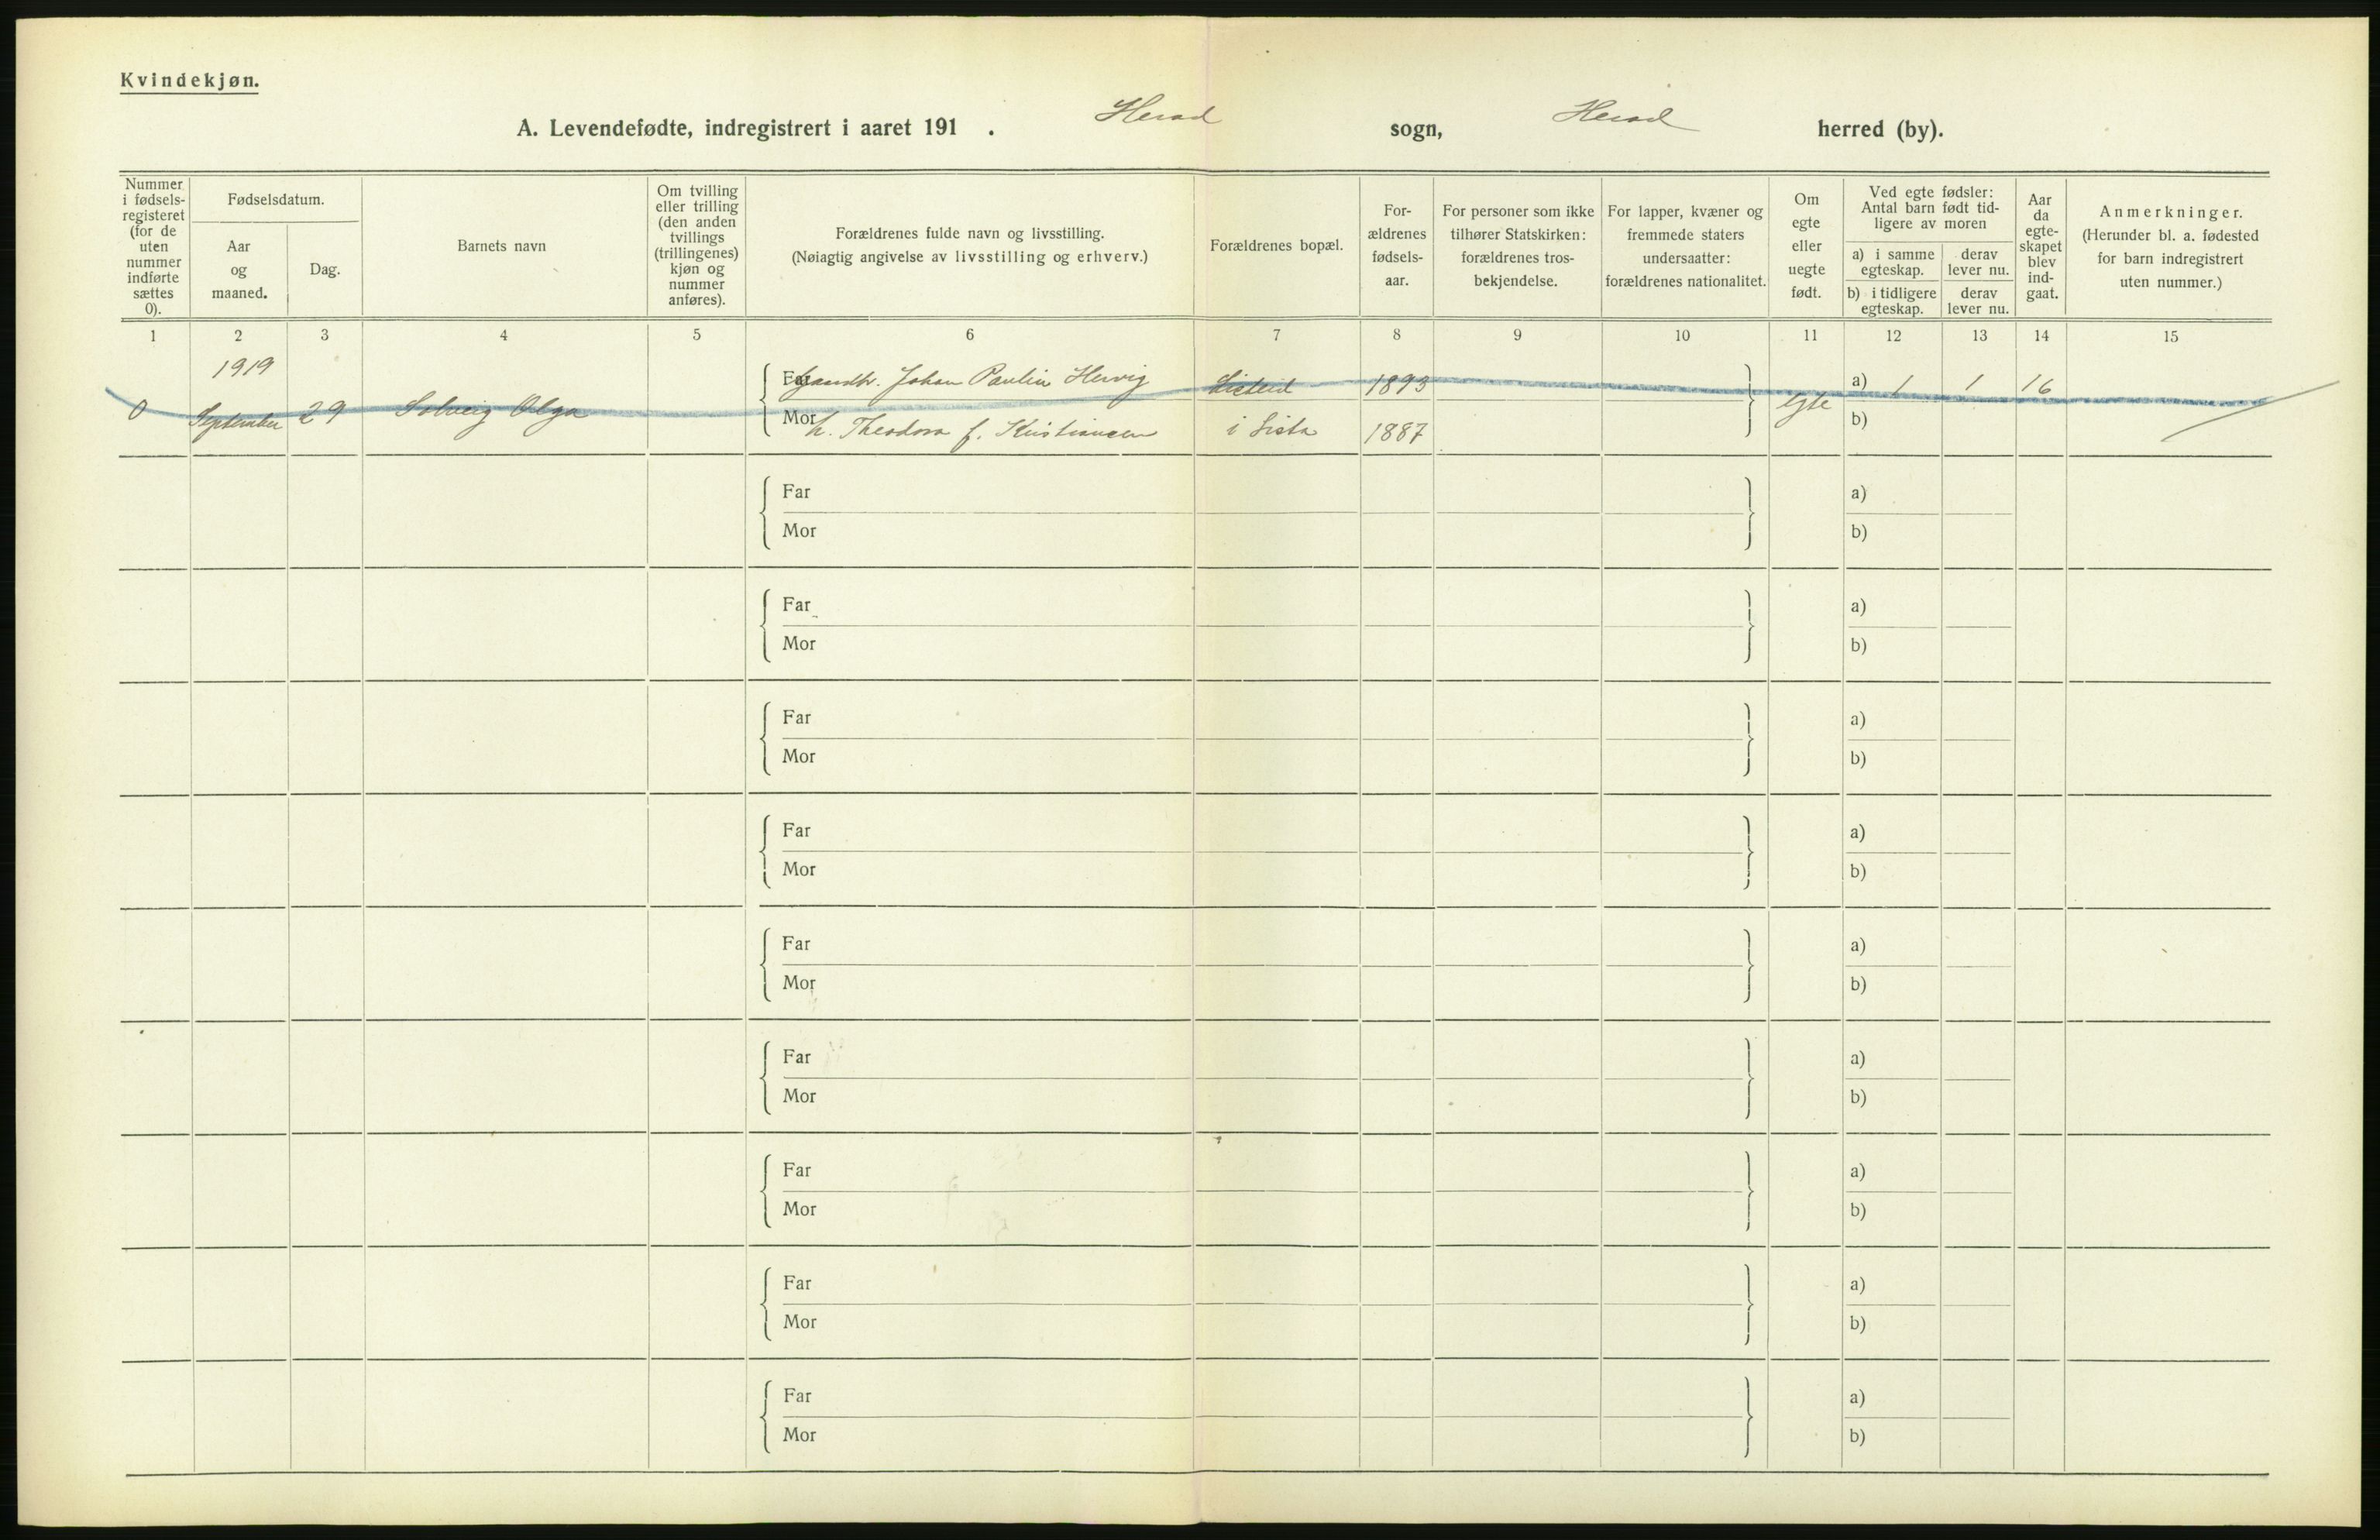 Kvindekjøn.
A. Levendefødte, indregistrert i aaret 191 . Herad sogn, Herad herred (by).
Nummer i fødsels-registeret (for de uten nummer indførte sættes 0).
Fødselsdatum.
Aar og maaned.
Dag.
Barnets navn
Om tvilling eller trilling (den anden tvillings (trillingenes) kjøn og nummer anføres).
Forældrenes fulde navn og livsstilling.
(Nøiagtig angivelse av livsstilling og erhverv.)
Forældrenes bopæl.
For-ældrenes fødsels-aar.
For personer som ikke tilhører Statskirken: forældrenes tros-bekjendelse.
For lapper, kvæner og fremmede staters undersaatter: forældrenes nationalitet.
Om egte eller uegte født.
Ved egte fødsler: Antal barn født tid-ligere av moren
a) i samme egteskap.
derav lever nu.
b) i tidligere egteskap.
derav lever nu.
Aar da egte-skapet blev ind-gaat.
Anmerkninger.
(Herunder bl. a. fødested for barn indregistrert uten nummer.)
1 2 3 4 5 6 7 8 9 10 11 12 13 14 15
1919
Far Gaardbr. Johan Paulin Hervig 1893 a) 1 1 16
0 September 29 Solveig Olga egte
Mor h. Theodora f. Kristiansen i Lista 1887 b)
Far a)
Mor b)
Far a)
Mor b)
Far a)
Mor b)
Far a)
Mor b)
Far a)
Mor b)
Far a)
Mor b)
Far a)
Mor b)
Far a)
Mor b)
Far a)
Mor b)